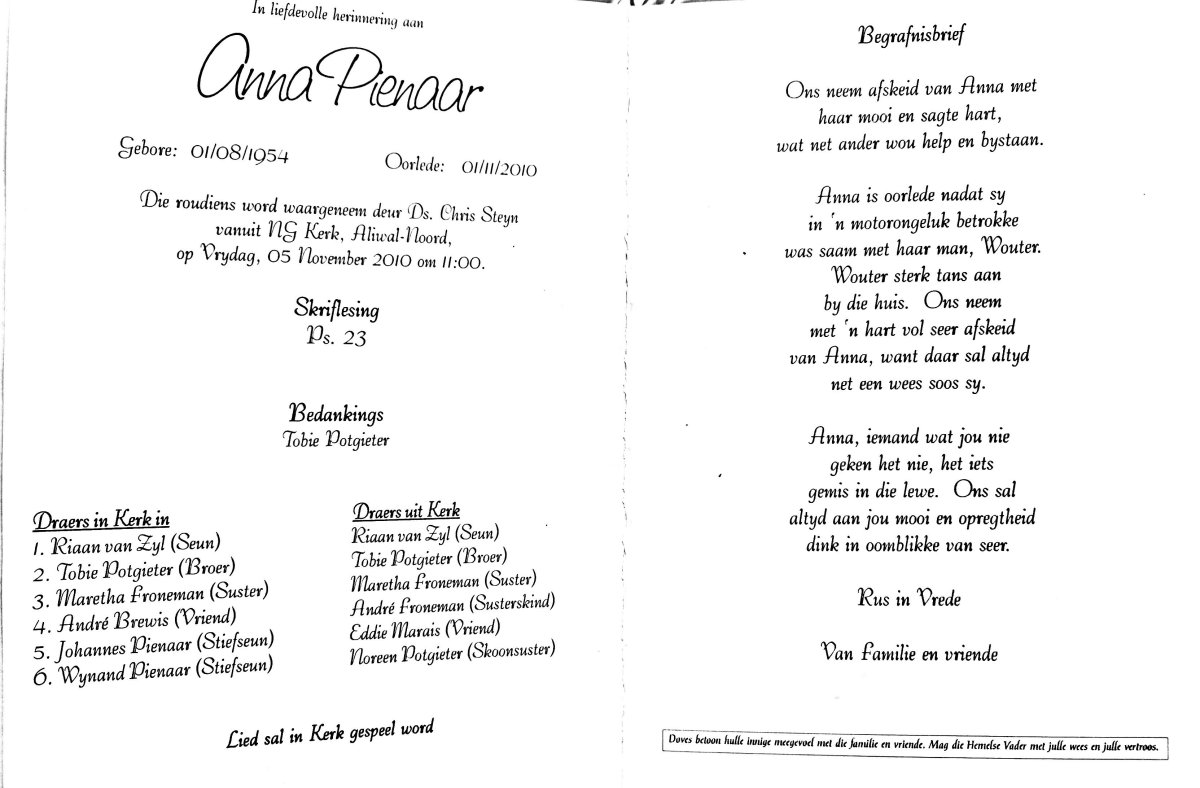 In liefdevolle herinnering aan
Anna Pienaar
Gebore: 01/08/1954
Oorlede: 01/11/2010
Die roudiens word waargeneem deur Ds. Chris Steyn
vanuit NG Kerk, Aliwal-Noord,
op Vrydag, 05 November 2010 om 11:00.
Skriflesing
Ps. 23
Bedankings
Tobie Potgieter
Draers in Kerk in
1. Riaan van Zyl (Seun)
2. Tobie Potgieter (Broer)
3. Maretha Froneman (Suster)
4. André Brewis (Vriend)
5. Johannes Pienaar (Stiefseun)
6. Wynand Pienaar (Stiefseun)
Draers uit Kerk
Riaan van Zyl (Seun)
Tobie Potgieter (Broer)
Maretha Froneman (Suster)
André Froneman (Susterskind)
Eddie Marais (Vriend)
Noreen Potgieter (Skoonsuster)
Lied sal in Kerk gespeel word
Begrafnisbrief
Ons neem afskeid van Anna met
haar mooi en sagte hart,
wat net ander wou help en bystaan.
Anna is oorlede nadat sy
in 'n motorongeluk betrokke
was saam met haar man, Wouter.
Wouter sterk tans aan
by die huis. Ons neem
met 'n hart vol seer afskeid
van Anna, want daar sal altyd
net een wees soos sy.
Anna, iemand wat jou nie
geken het nie, het iets
gemis in die lewe. Ons sal
altyd aan jou mooi en opregtheid
dink in oomblikke van seer.
Rus in Vrede
Van Familie en vriende
Doves betoon hulle innige meegevoel met die familie en vriende. Mag die Hemelse Vader met julle wees en julle vertroos.